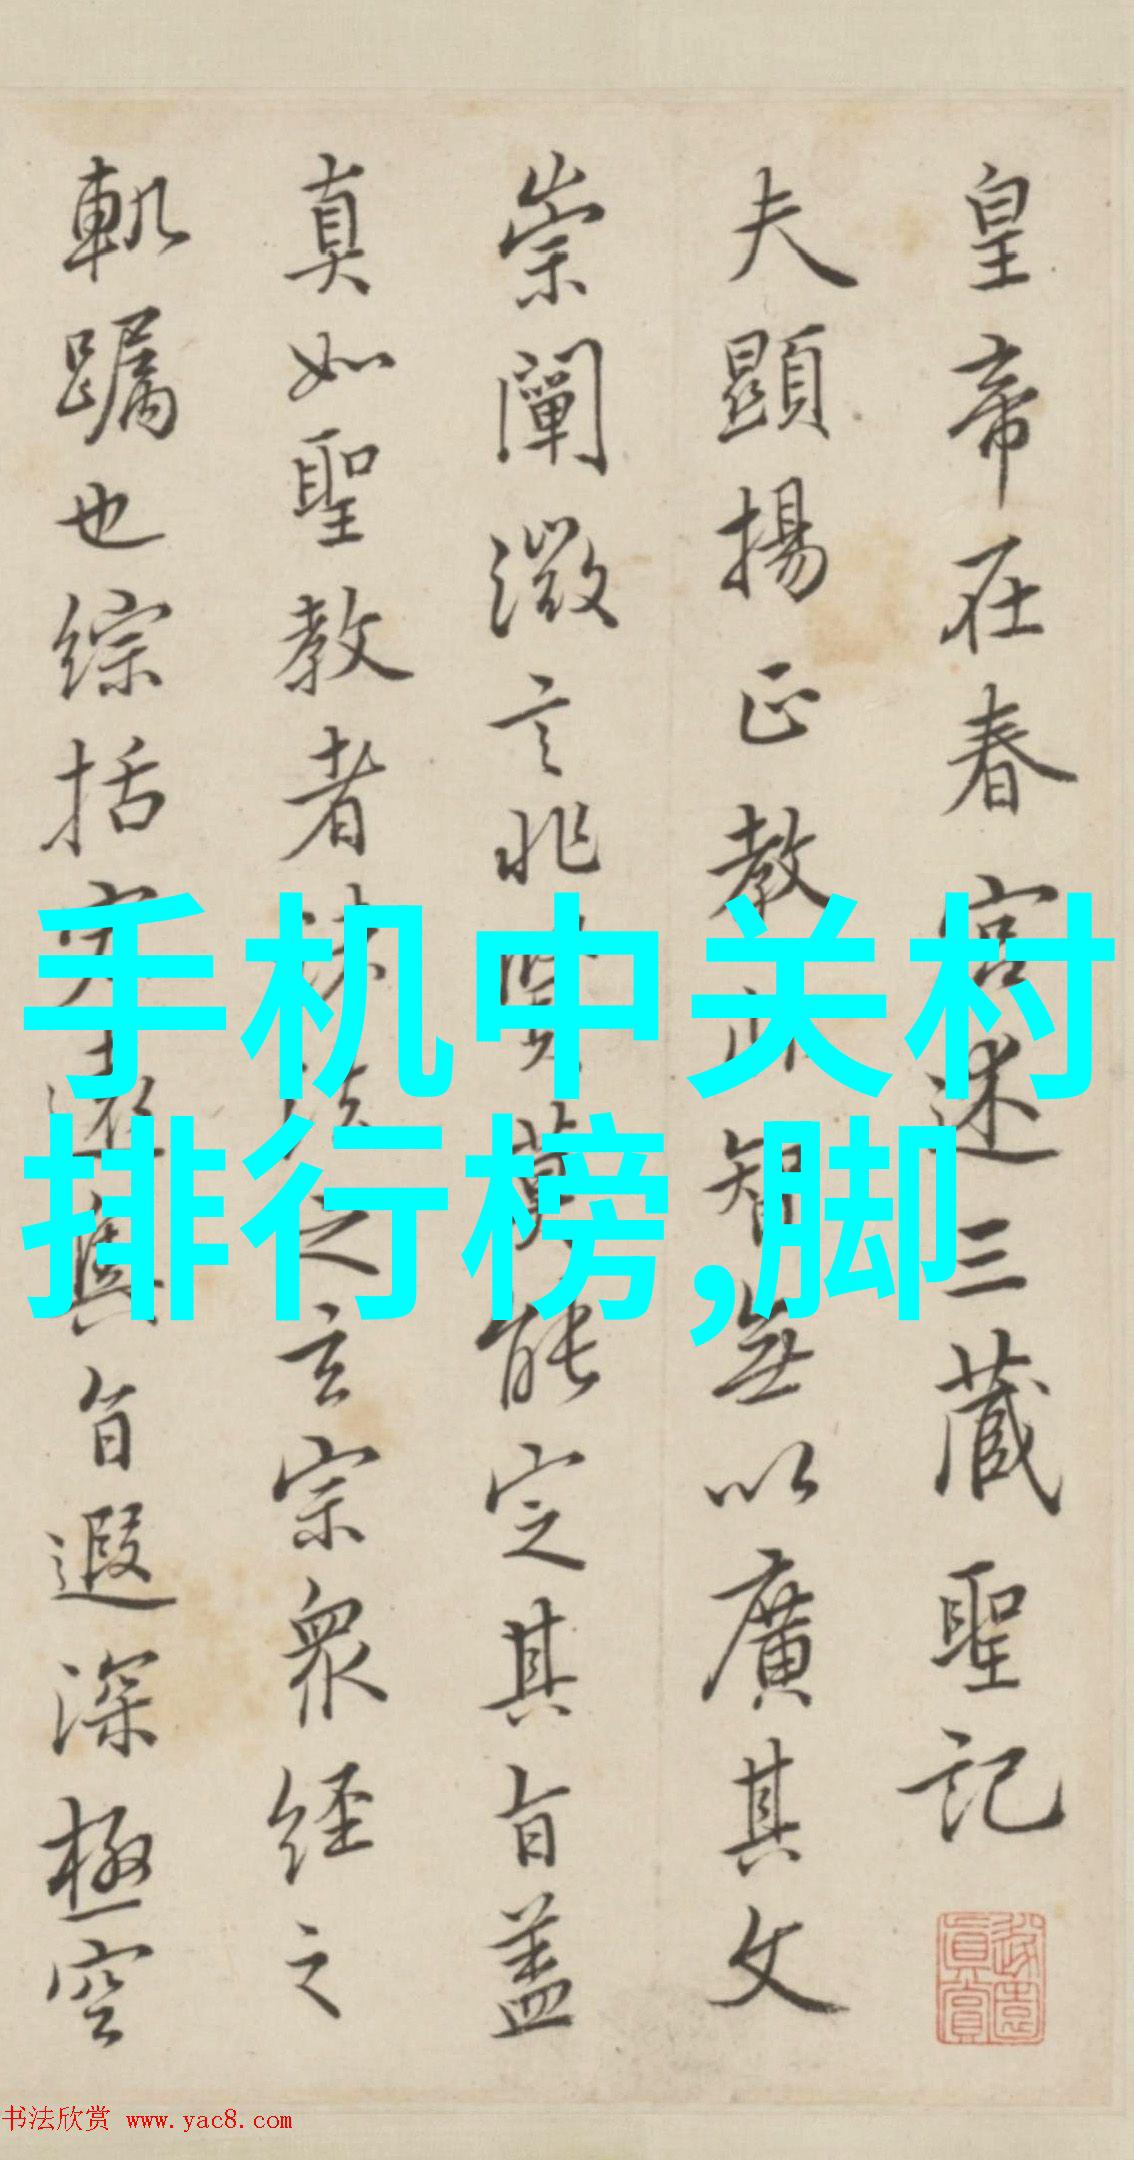 皇帝在春宫述三藏聖記
夫顯揚正教非智無以廣其文
崇闡微言非賢莫能定其旨蓋
真如聖教者諸法之玄宗眾經之
軌躅也綜括宏遠奧旨遐深極空
手机中关村
排行榜,脚
书法欣赏 www.yac8.com